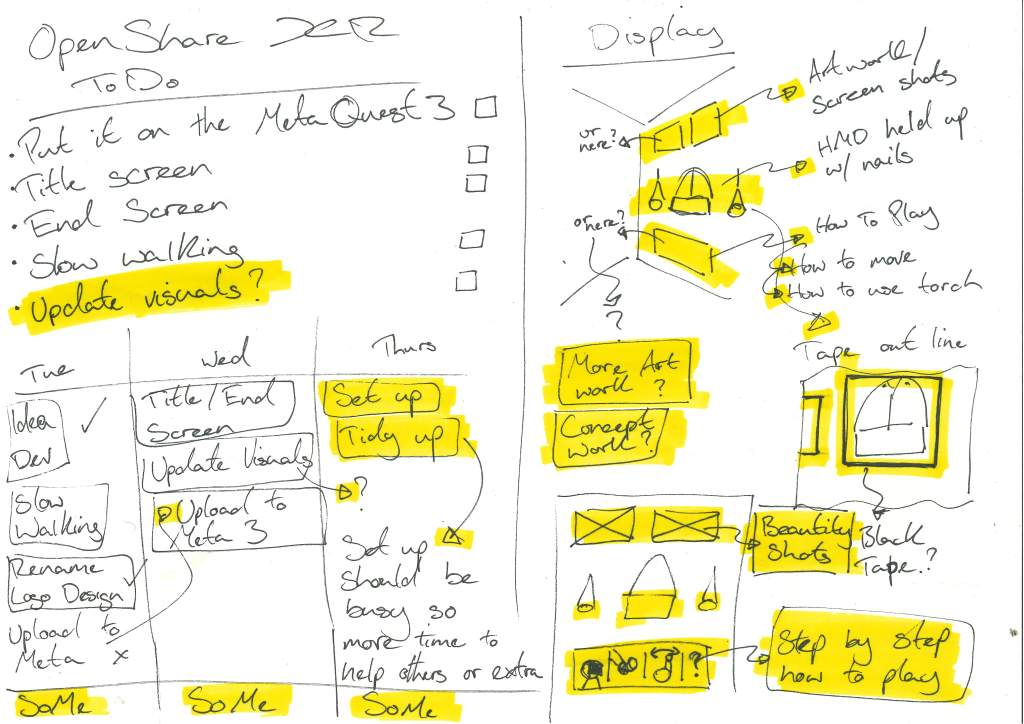 OpenShare XR
ToDo
• Put it on the Meta Quest 3
• Title screen
• End Screen
• Slow walking
• Update visuals?
Tue
Idea
Dev
Slow
Walking
Rename
Logo Design
Upload to
Meta x
SoMe
Wed
Title/End
Screen
Update Visuals
Upload to
Meta 3
SoMe
Thurs
Set up
Tidy up
?
Set up
should be
busy so
more time to
help others or extra
SoMe
Display
Artwork/
Screen shots
or
here?
HMD held up
w/ nails
or
here?
How To Play
How to move
How to use torch
?
Tape out line
More Art
work?
Concept
work?
Black
Tape?
Beautify
shots
?
Step by step
how to play